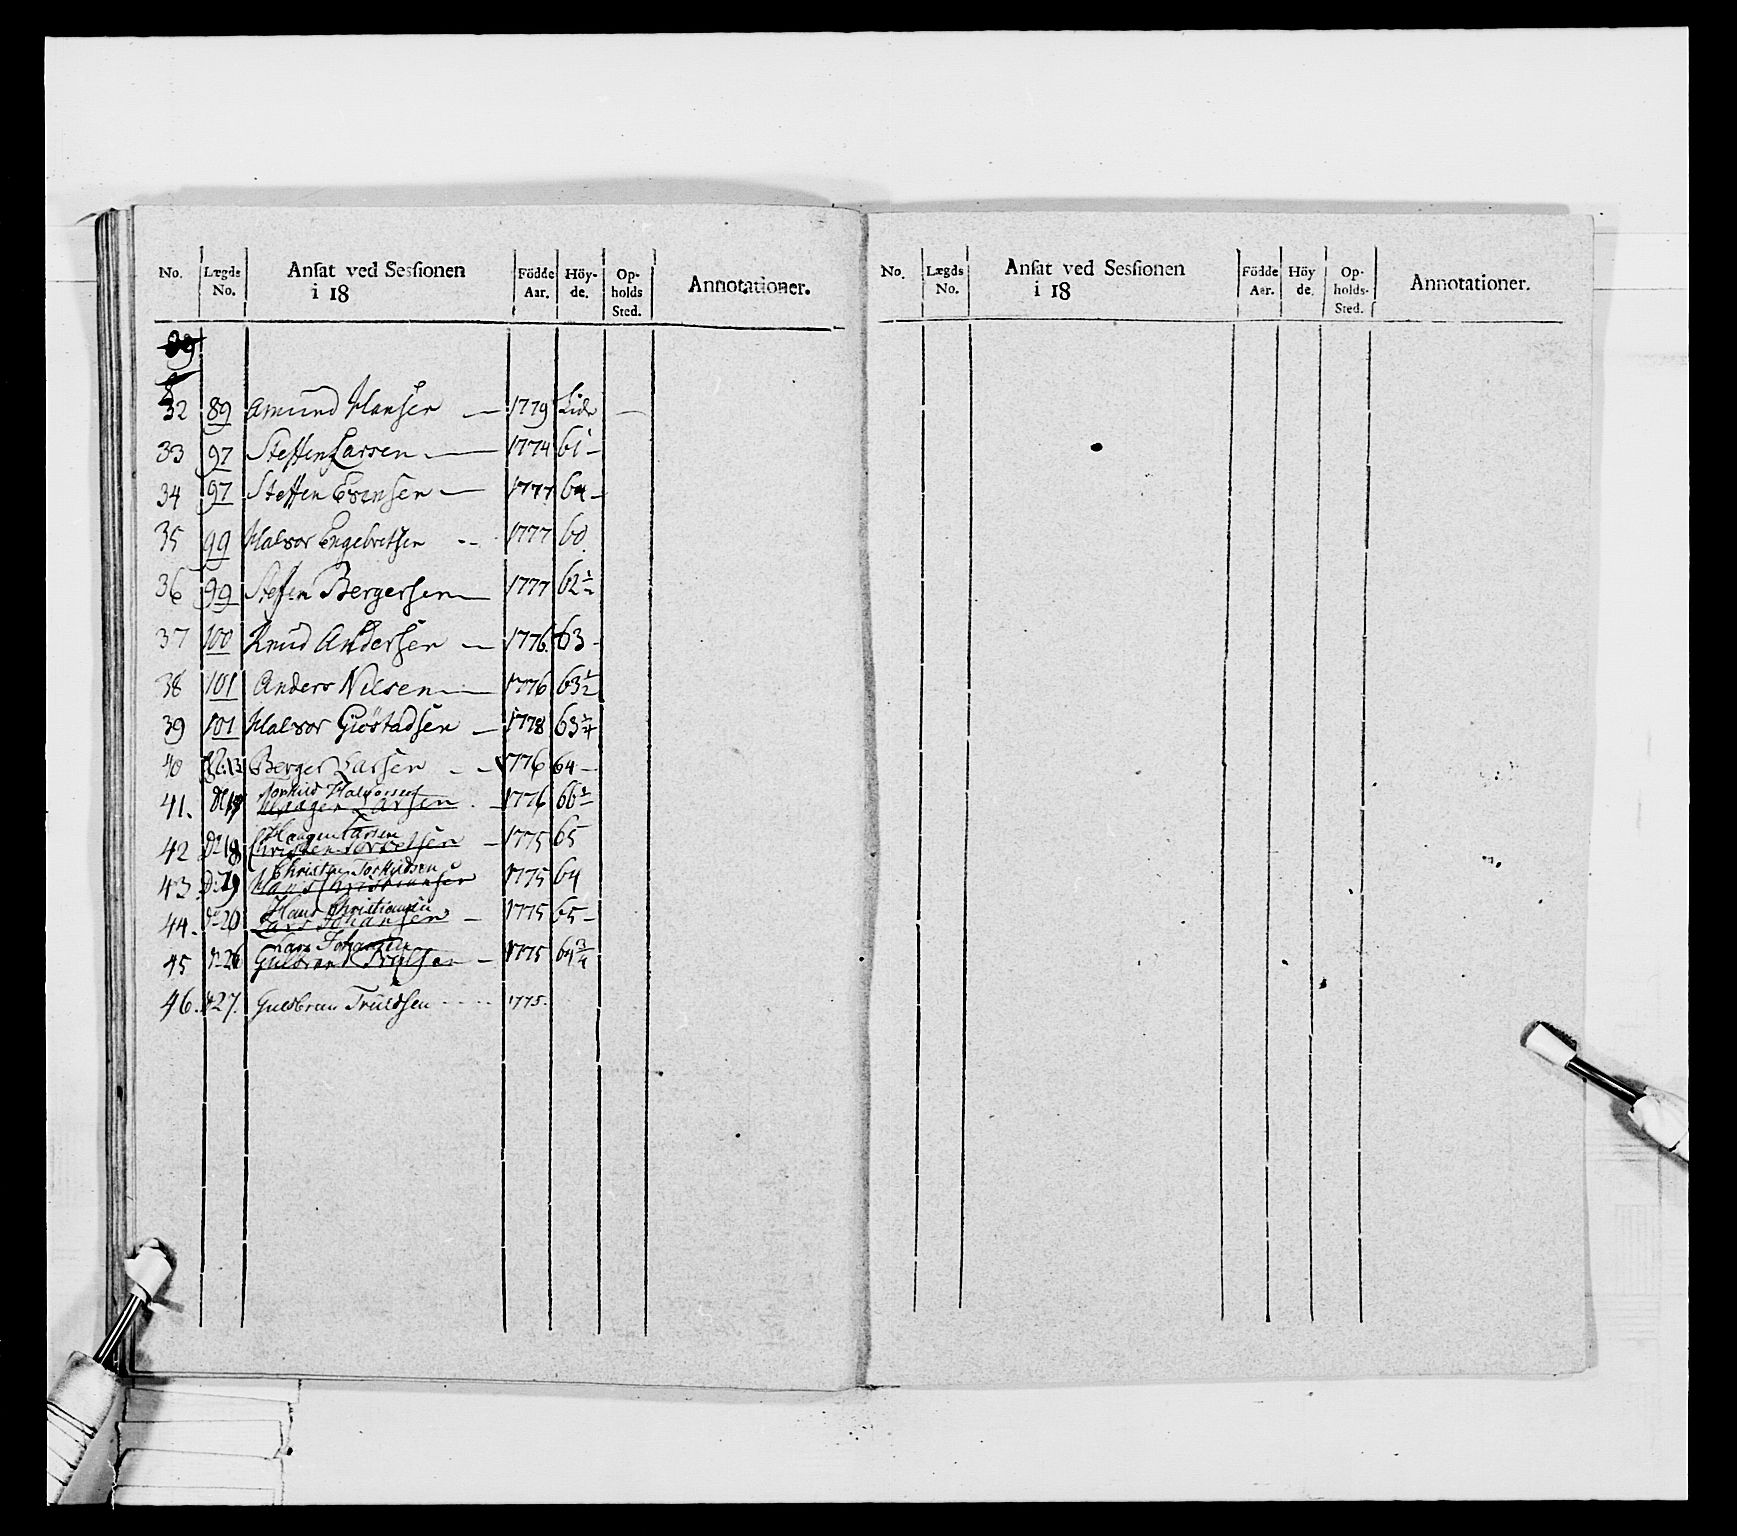 No. Lægds No. Ansat ved Sessionen i 18 Födde Aar. Höy-de. Op-holds Sted. Annotationer.
32 89 Amund Hansen — 1779 Lidr —
33 97 Steffen Larsen — 1774 61 —
34 97 Steffen Evensen — 1777 64 —
35 99 Halvor Engebretsen -- 1777 60
36 99 Steffen Bergersen — 1777 62 1/2
37 100 Knud Andersen — 1776. 63 —
38 101 Anders Nilsen — 1776 63 1/2
39 101 Halvor Giöstadsen — 1778 63 3/4
40 13 Berger Larsen — 1776 64 —
Torkild Halvorsen
41. Do 17 Haagen Larsen — 1776 66 1/2
Haagen Larsen
42 Do 18 Christen Torkelsen — 1775 65
Christen Torkildsen
43. Do 19 Hans Christiansen 1775 64
Hans Christiansen
44. Do 20 Lars Johansen — 1775 65 —
Lars Johansen
45 Do 26 Gulbrand Trulsen — 1775 64 3/4
46. 27. Guldbran Truldsen 1775.
No. Lægds No. Ansat ved Sessionen i 18 Födde Aar. Höy de. Op-holds-Sted. Annotationer.